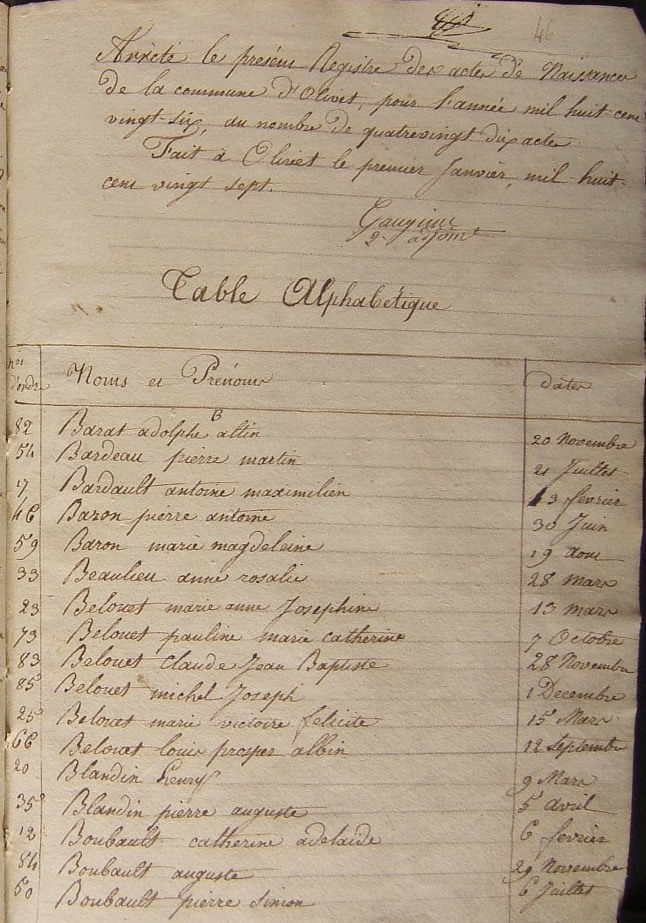 46
Arrêté le présent Registre des actes de Naissances
de la commune d'Olivet, pour l'année mil huit-cent
vingt-six, au nombre de quatrevingt dix actes
Fait à Olivet le premier Janvier, mil-huit-
cent vingt sept.
2e adjoint
Table Alphabétique
nos d'ordre Noms et Prénoms dates
B
82 Barat adolphe altin 20 Novembre
54 Bardeau pierre martin 21 Juillet
17 Bardault antoine maximilien 13 fevrier
46 Bazon pierre antoine 30 Juin
59 Baron marie magdeleine 19 aout
33 Beaulieu anne rosalie 28 mars
23 Belouet marie anne Josephine 13 mars
73 Belouet pauline marie catherine 7 Octobre
83 Belouet claude Jean Baptiste 28 Novembre
85 Belouet michel Joseph 1 Decembre
25 Belouet marie victoire felicite 15 Mars
66 Belouet louis prosper albin 12 Septembre
20 Blandin henry 9 Mars
35 Blandin pierre auguste 5 avril
12 Boubault catherine adelaide 6 fevrier
84 Boubault auguste 29 Novembre
50 Boubault pierre simon 6 Juillet